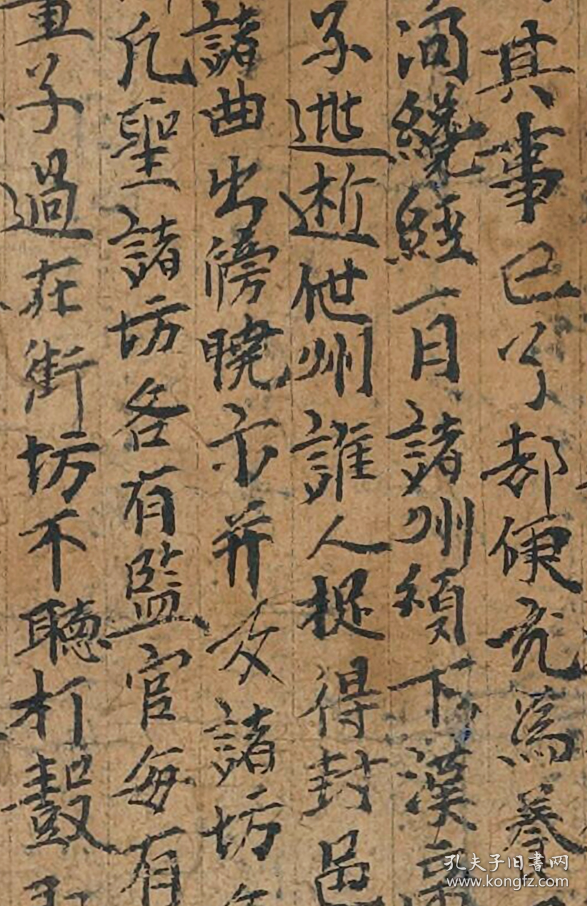 其事已了都便充為
繞經一月諸州頒下漢
逝他州誰人捉得封邑
諸曲出傍曉示并及諸坊
凡聖諸坊各有監官每有
童子過在街坊不聽打鼓
孔夫子旧书网
www.kongfz.com